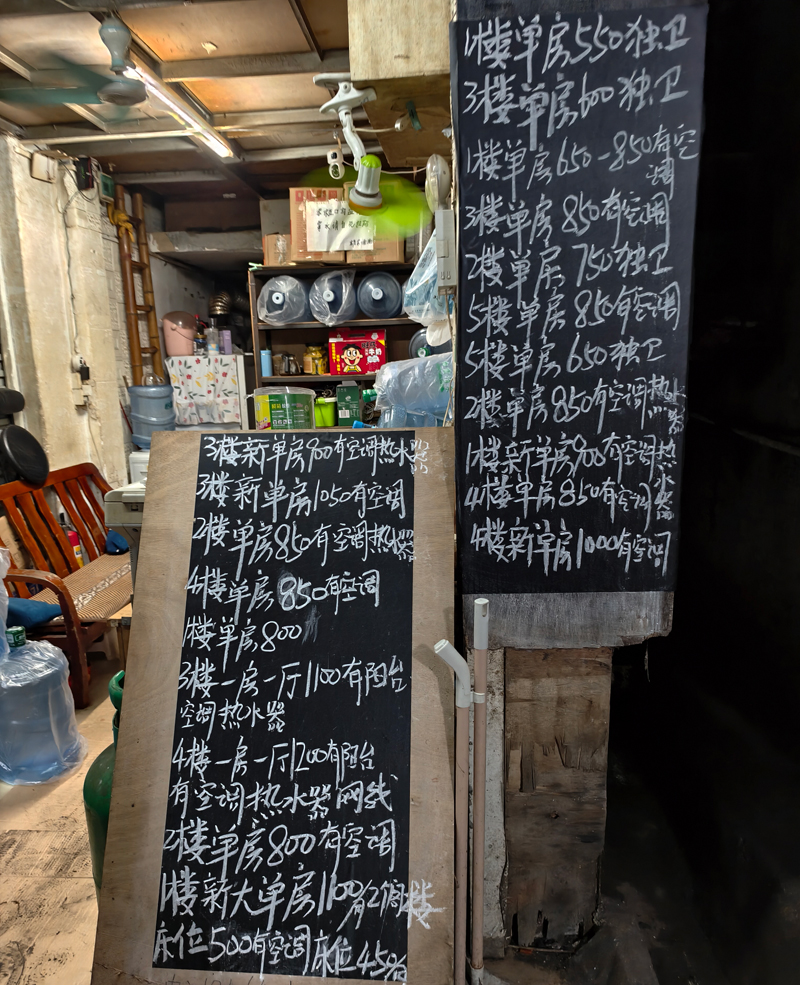 1楼单房550独卫
3楼单房600独卫
1楼单房650-850有空
调
3楼单房850有空调
2楼单房750独卫
5楼单房850有空调
5楼单房650独卫
2楼单房850有空调热水
器
1楼新单房900有空调热
水
器
4楼单房850有空调
4楼新单房1000有空调
3楼新单房900有空调热水器
3楼新单房1050有空调
2楼单房850有空调热水器
4楼单房850有空调
1楼单房800
3楼一房一厅1100有阳台
空调热水器
4楼一房一厅1200有阳台
有空调热水器网线
2楼单房800有空调
1楼新大单房1100有2个阁楼
床位500有空调床位450